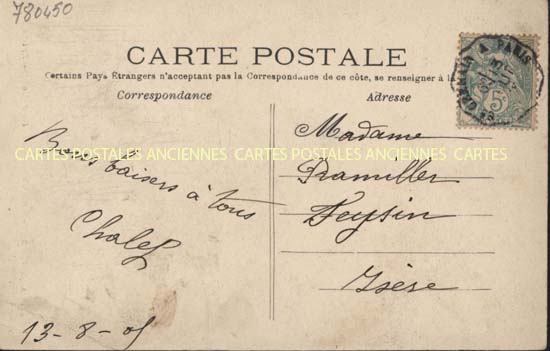 780450
CARTE POSTALE
Certains Pays Étrangers n'acceptant pas la Correspondance de ce côté, se renseigner à la
Correspondance
Adresse
A PARIS
5
Madame
Bons baisers à tous
CARTES POSTALES ANCIENNES CARTES POSTALES ANCIENNES CARTES
Pramiller
Feysin
Isère
13-8-05